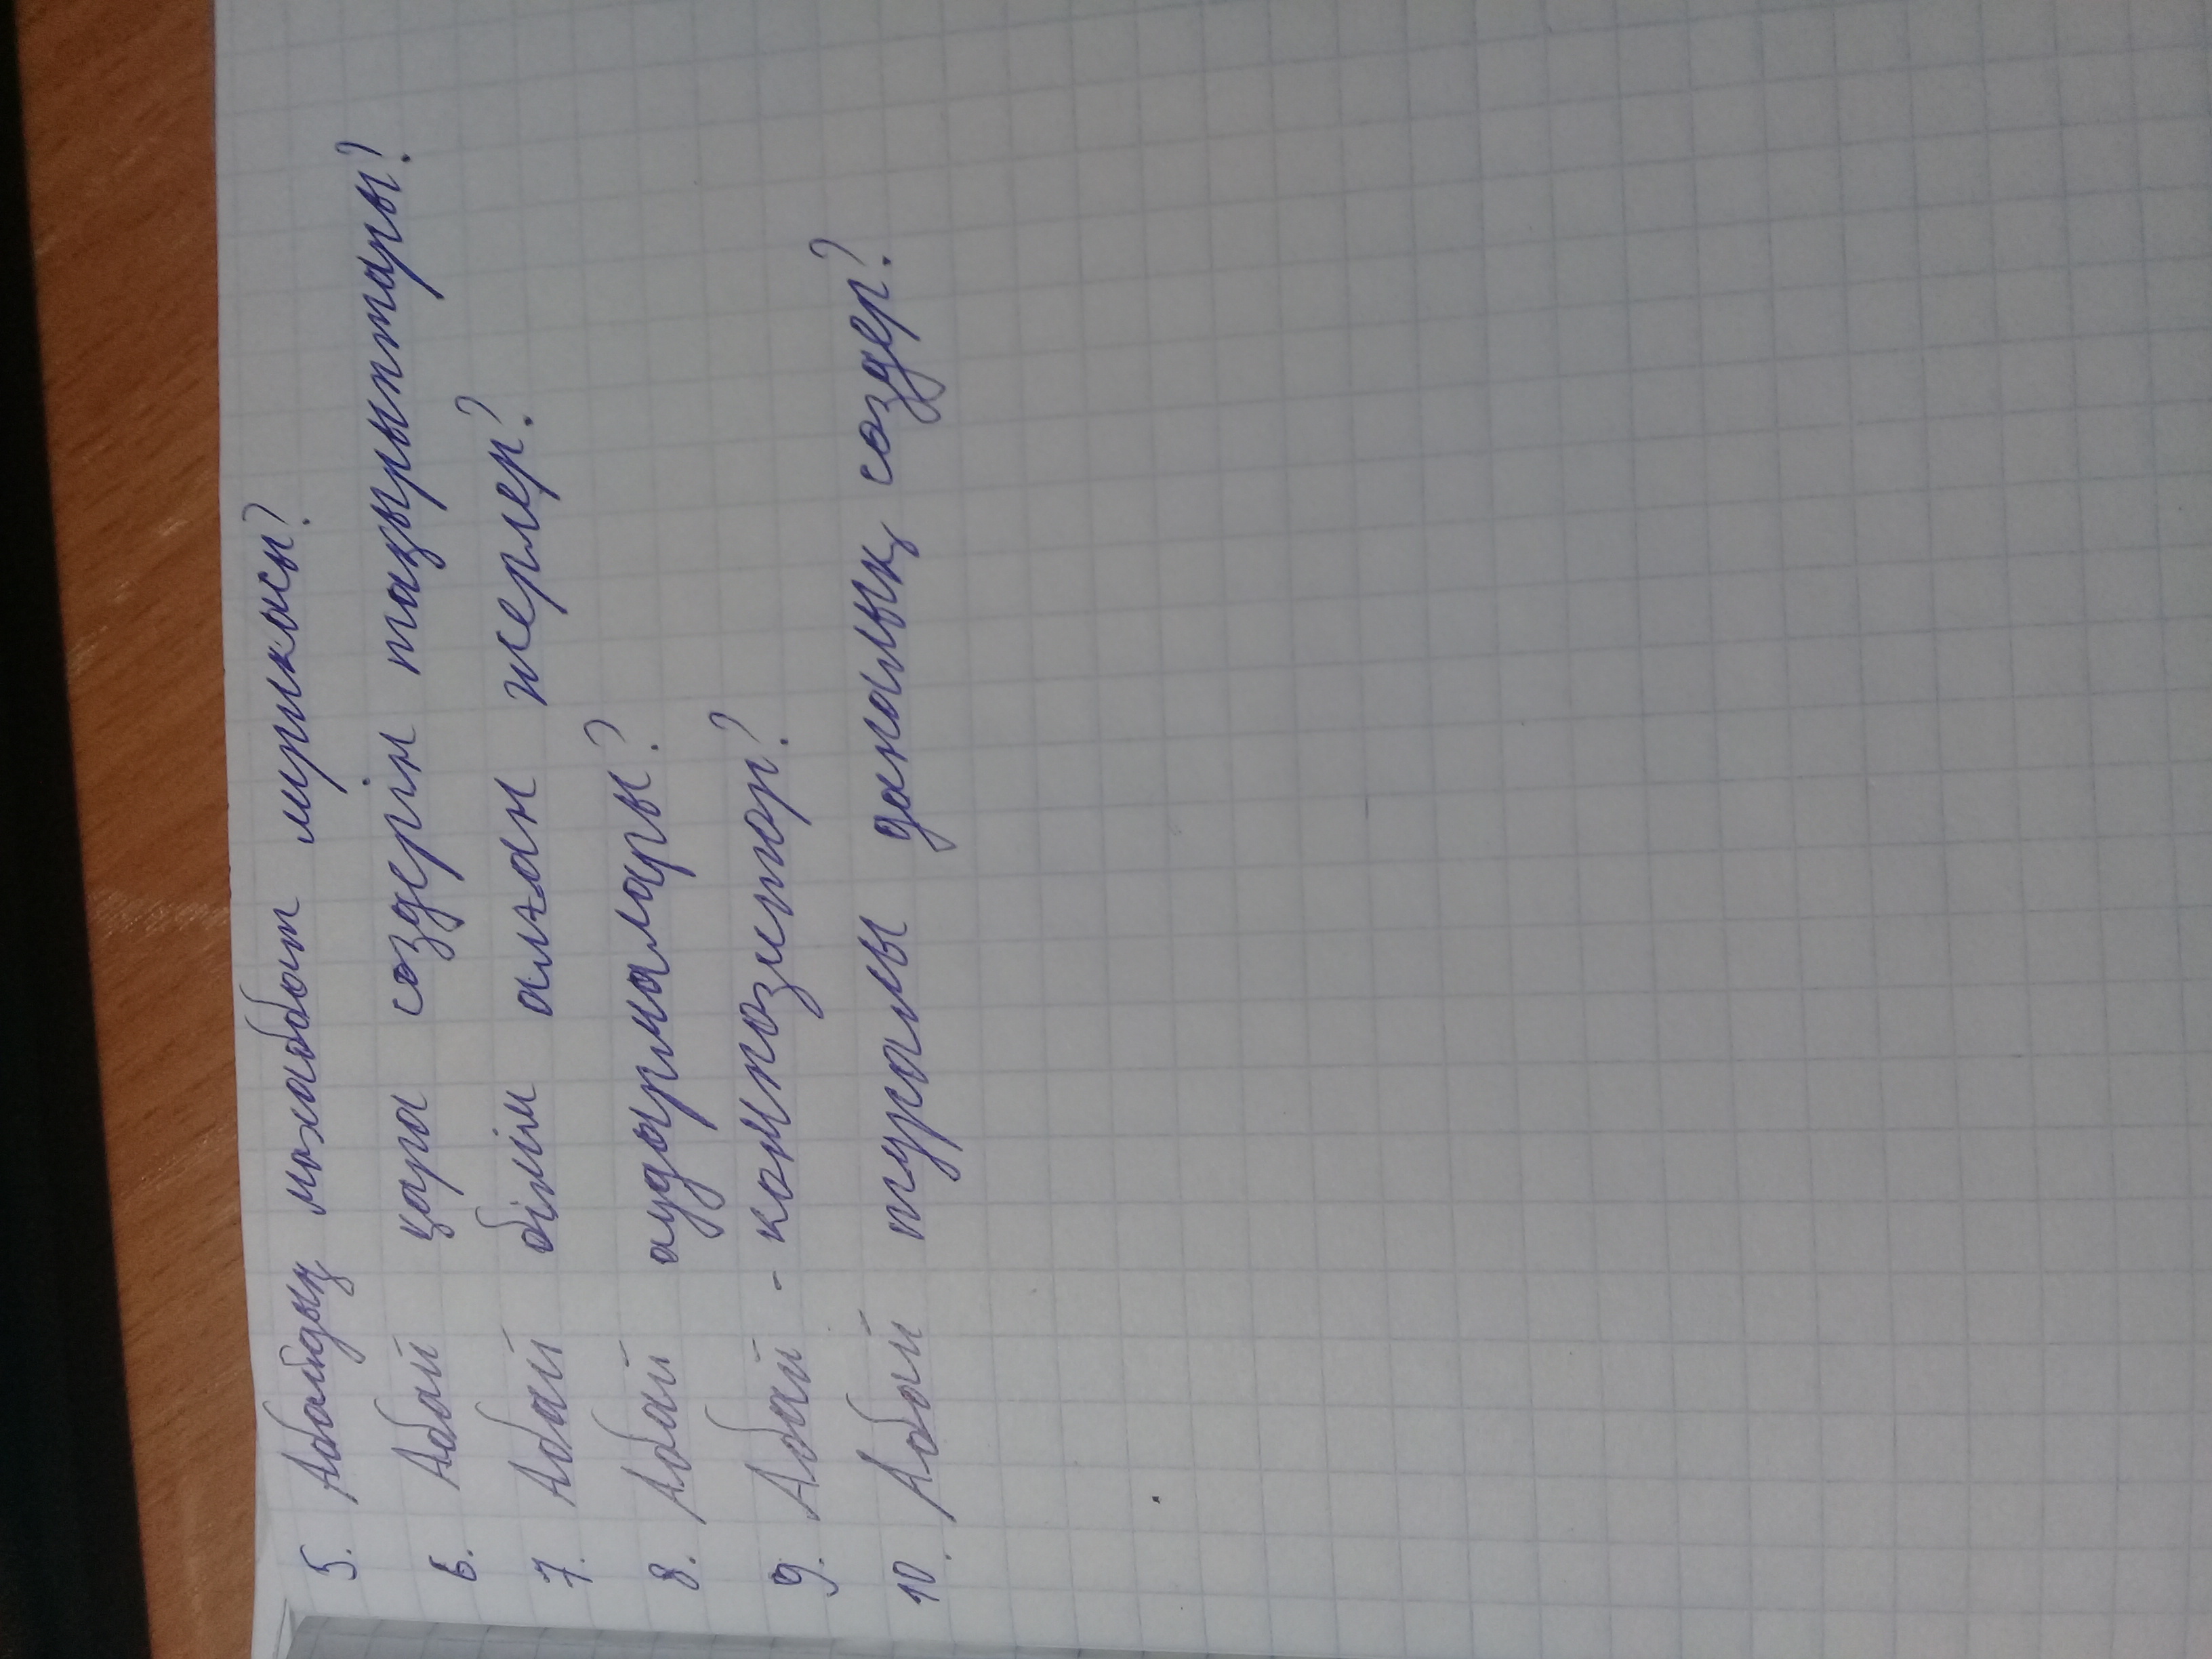 5. Абайдың махаббат лирикасы?
6. Абай қара создерін тақырыптары?
7. Абай білім алған жерлер?
8. Абай аудармалары?
9. Абай - композитор?
10. Абай туралы даналық создер?